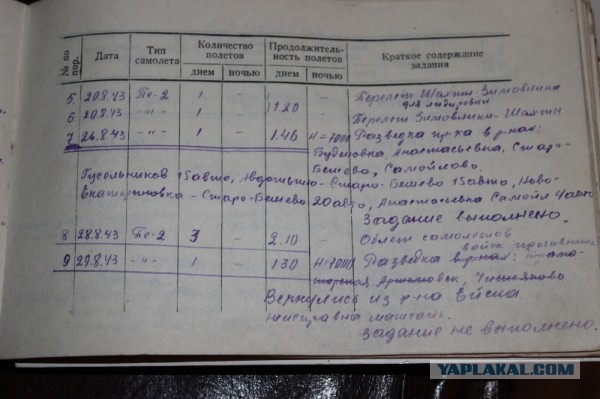 № по пор.
Дата
Тип самолета
Количество полетов
днем
ночью
Продолжитель-
ность полетов
днем
ночью
Краткое содержание
задания
5 20.8.43 Пе-2 1 - - Перелет Шахты Зимовники
для
6 20.8.43 -"- 1 - 1.20 - Перелет Зимовники - Шахты
7 26.8.43 -"- 1 - 1.46 Н=7000 Разведка пр-ка в р-нах:
Будёновка, Анастасьевка, Старо-
Бешево, Самойлово.
Гусельников 15 авто, Авдотьино - Старо-Бешево 15 авто, Ново-
Екатериновка - Старо-Бешево 20 авто, Анастасьевка Самойл 4 авто
Задание выполнено.
8 28.8.43 Пе-2 3 - 2.10 - Облет самолетов
войск противника
9 29.8.43 -"- 1 - 1.30 Н=7000 Разведка в р-нах: Крама-
торская, Артемовск, Чистяково
Вернулись из р-на Ейска
неисправна матчасть.
Задание не выполнено.
YAPLAKAL.COM